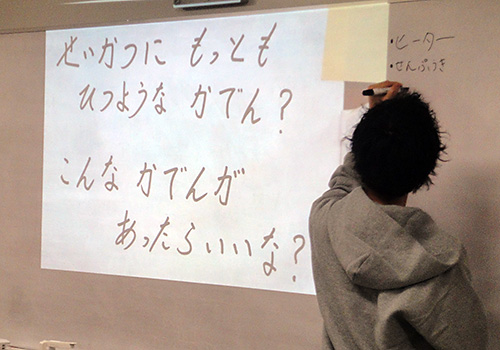 せいかつに もっとも
ひつような かでん?
こんな かでんが
あったらいいな?
・ヒーター
・せんぷうき